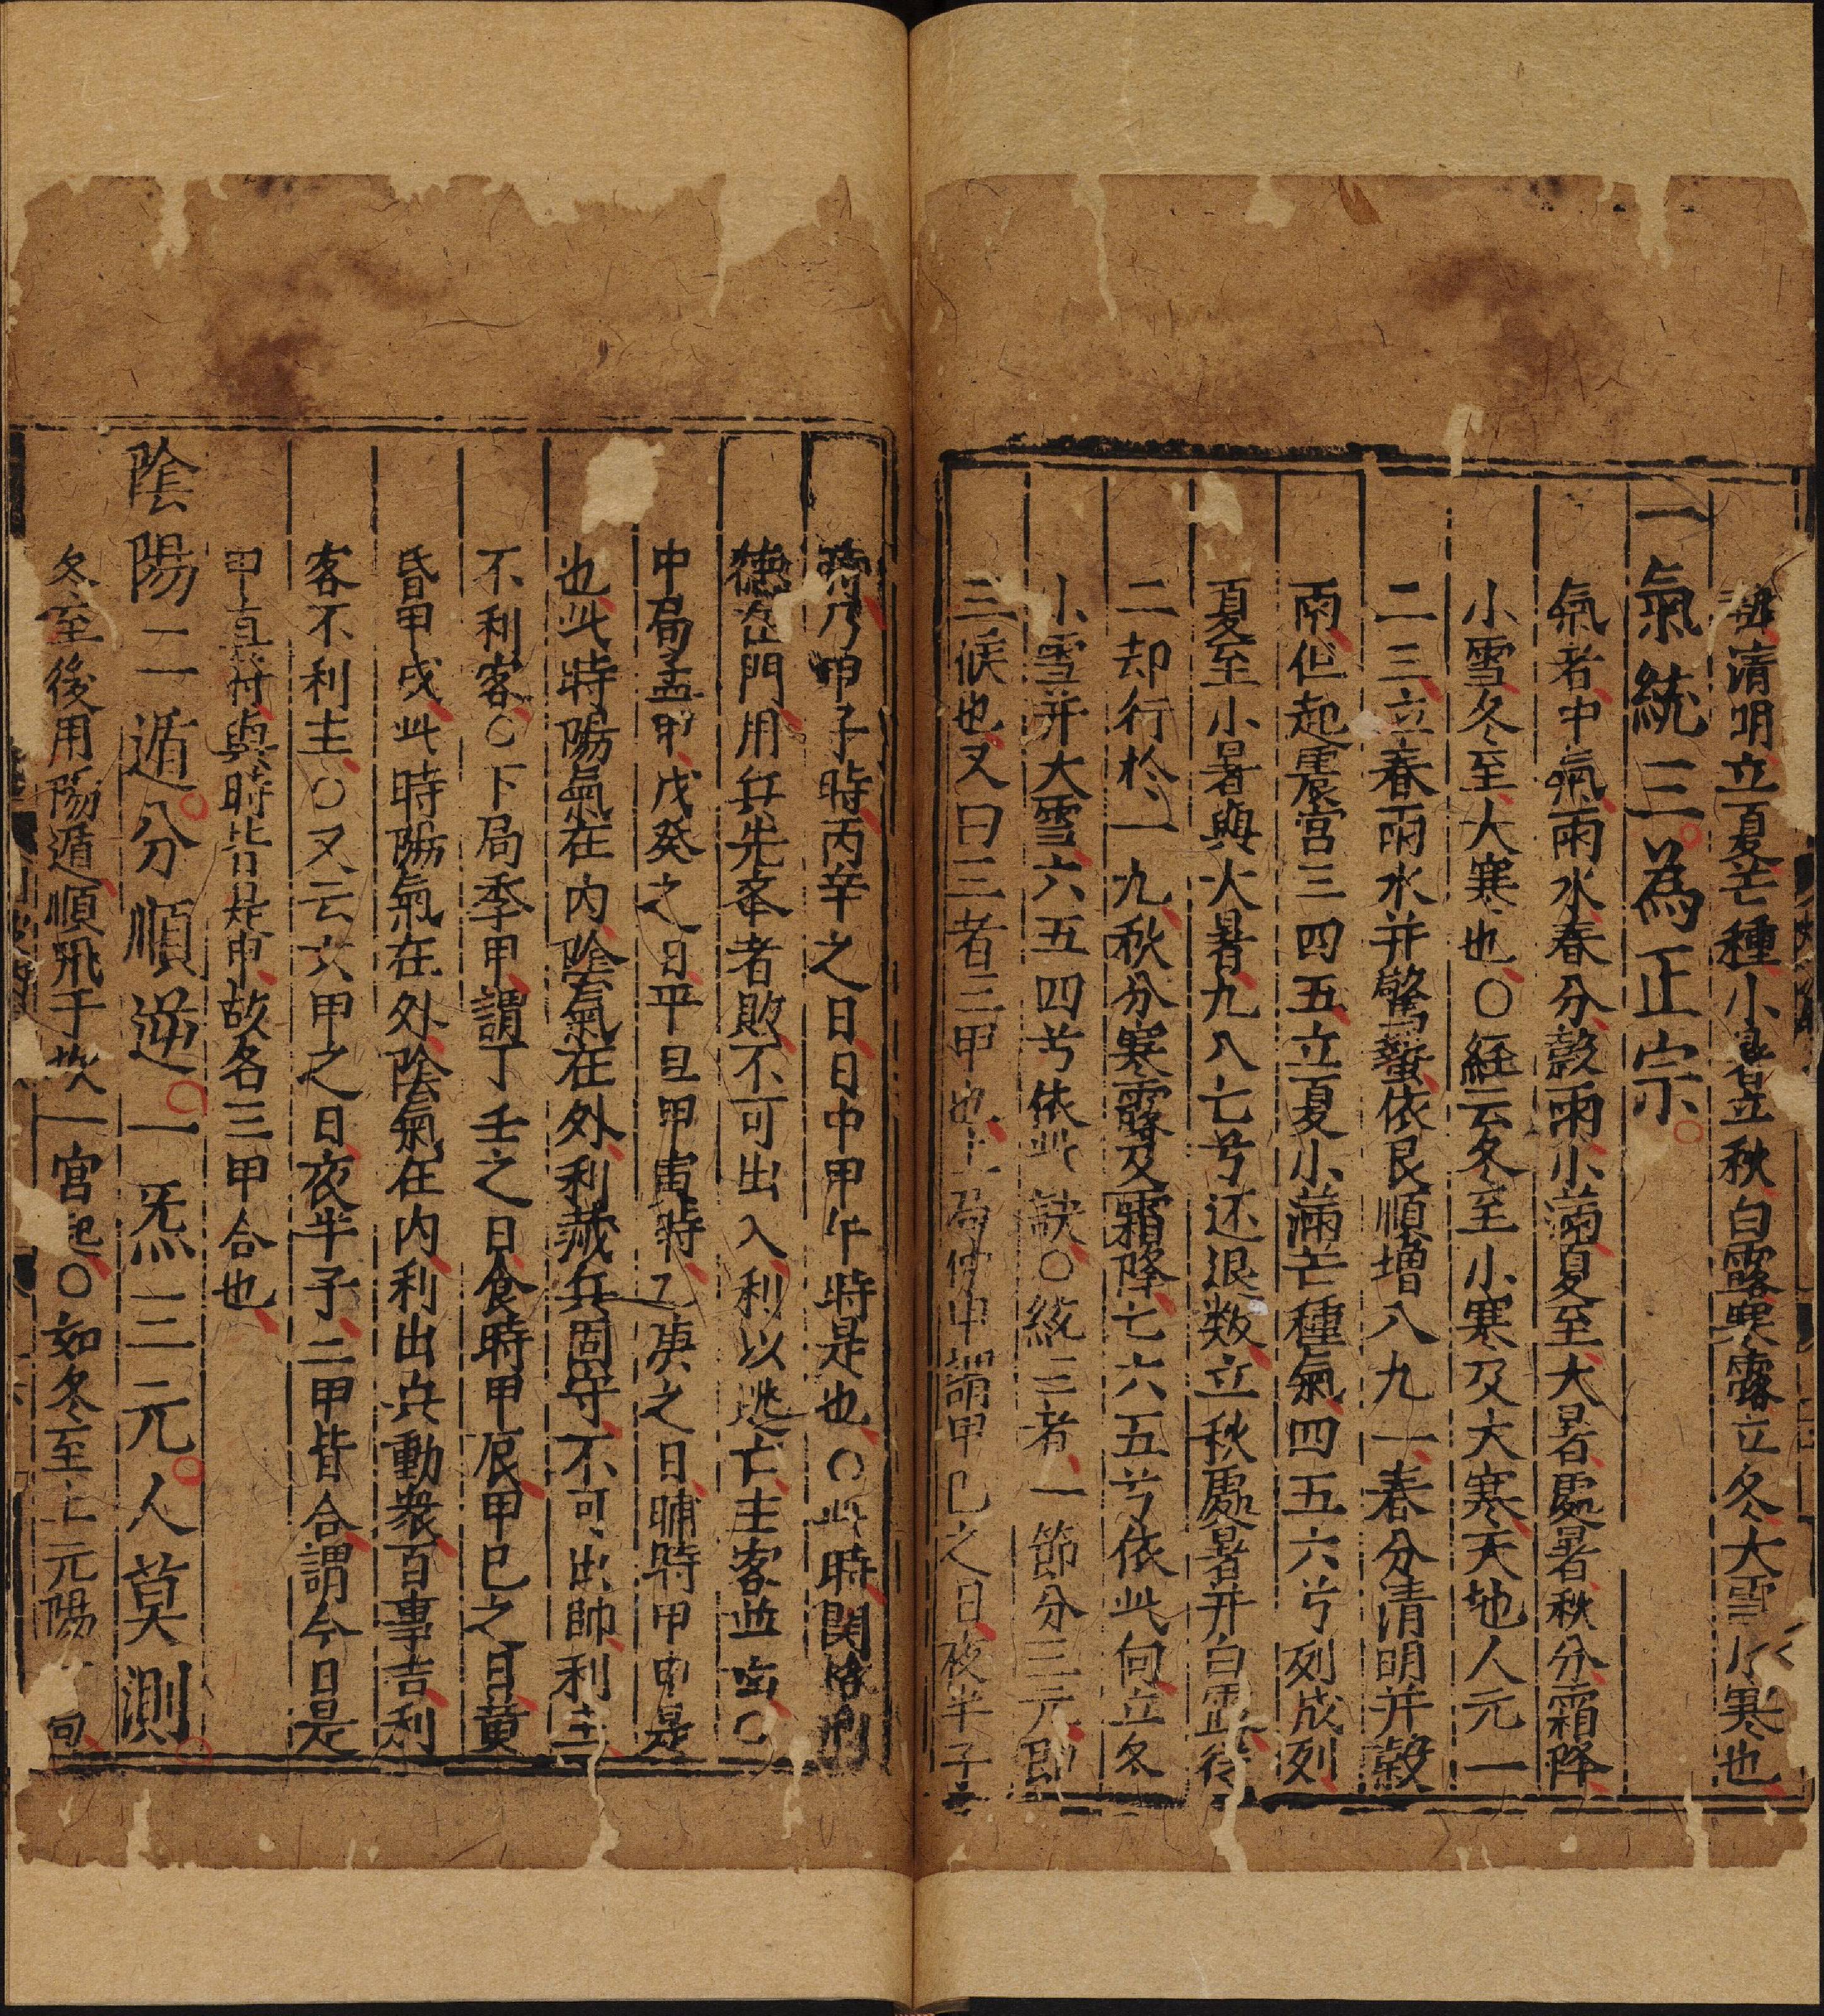 蟄清明立夏芒種小暑立秋白露寒露立冬大雪小寒也
一氣統三為正宗
氣者中氣雨水春分穀雨小滿夏至大暑處暑秋分霜降
小雪冬至大寒也○經云冬至小寒及大寒天地人元一
二三立春雨水并驚蟄依艮順增八九一春分清明并穀
雨但起震宮三四五立夏小滿芒種氣四五六兮列成列
夏至小暑與大暑九八七兮还退数立秋處暑并白露後
二却行於一九秋分寒露及霜降七六五兮依此向立冬
小雪并大雪六五四兮依此訣○統三者一節分三元即
三候也又曰三者三甲也上局仲甲謂甲己之日夜半子
時乃甲子時丙辛之日日中甲午時是也○此時関格刑
德在門用兵先舉者敗不可出入利以逃亡主客並凶○
中局孟甲戊癸之日平旦甲寅時乙庚之日晡時甲申是
也此時陽氣在內陰氣在外利藏兵固守不可出帥利主
不利客○下局季甲謂丁壬之日食時甲辰甲已之日黄
昏甲戌此時陽氣在外陰氣在内利出兵動衆百事吉利
客不利主○又云六甲之日夜半子二甲皆合謂今日是
甲直符與時皆是甲故名三甲合也
陰陽二遁分順逆一炁三元人莫測
冬至後用陽遁順飛于坎一宮起○如冬至上元陽一局